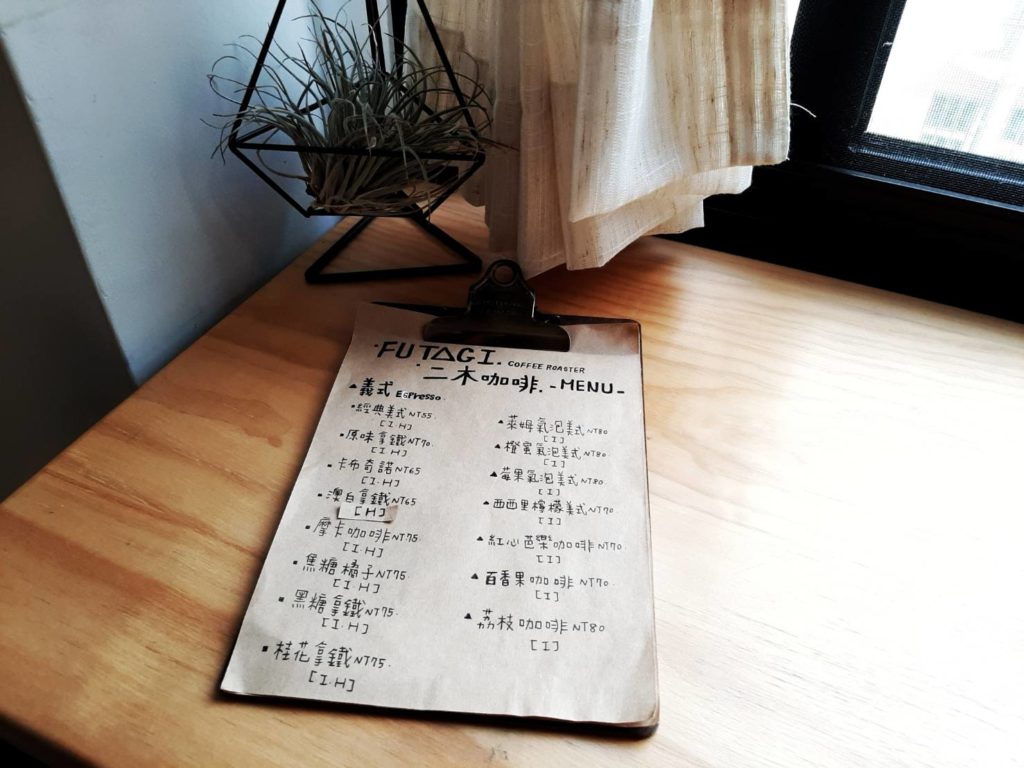 ·FUTAGI. COFFEE ROASTER
·二木咖啡. -MENU-
▲義式 Espresso.
▪經典美式NT55
[I.H]
▪原味拿鐵NT70.
[I.H]
▪卡布奇諾NT65
[I.H]
▪澳白拿鐵NT65
[H]
▪摩卡咖啡NT75.
[I.H]
▪焦糖橘子NT75.
[I.H]
▪黑糖拿鐵NT75.
[I.H]
▪桂花拿鐵NT75.
[I.H]
▲萊姆氣泡美式NT80
[I]
▲橙蜜氣泡美式NT80.
[I]
▲莓果氣泡美式NT80
[I]
▲西西里檸檬美式NT70.
[I]
▲紅心芭樂咖啡NT70.
[I]
▲百香果咖啡NT70.
[I]
▲荔枝咖啡NT80
[I]